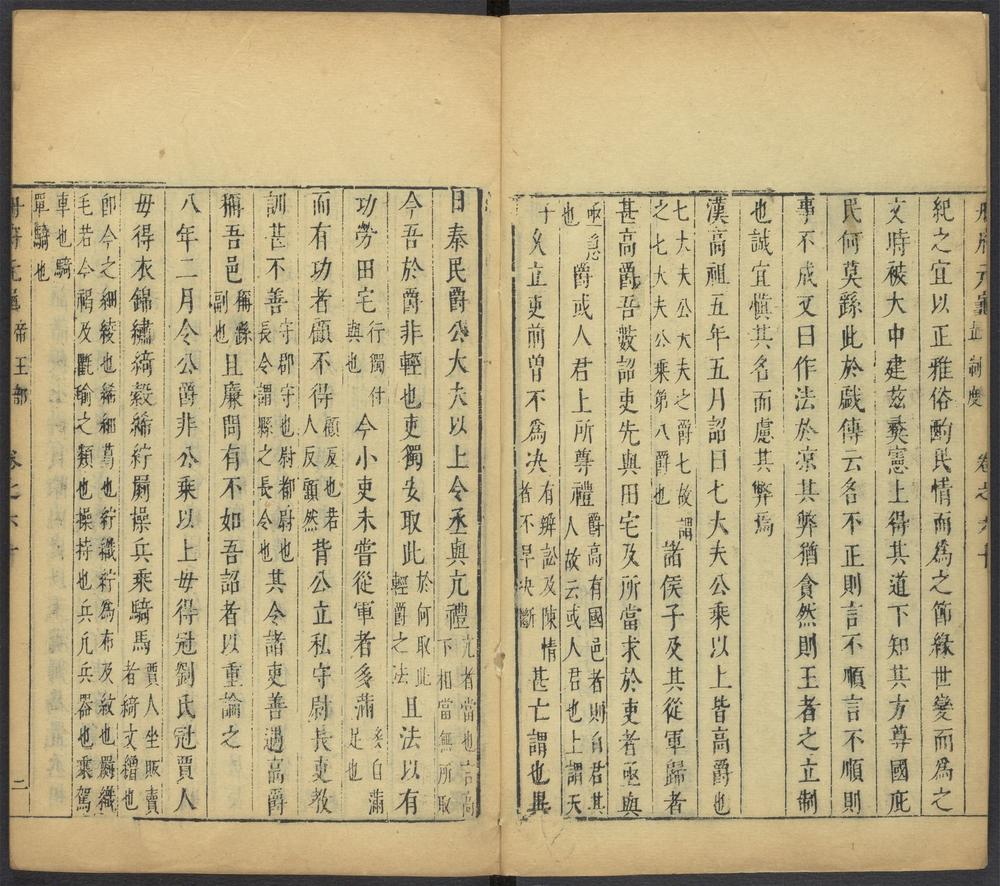 冊府元龜 立制度 卷之六十
紀之宜以正雅俗酌民情而爲之節緣世變而爲之
文時被大中建兹彛憲上得其道下知其方尊國庇
民何莫繇此於戲傳云名不正則言不順言不順則
事不成又曰作法於凉其弊猶貪然則王者之立制
也誠宜愼其名而慮其弊焉
漢高祖五年五月詔曰七大夫公乘以上皆高爵也
七大夫公大夫之爵七故謂
之七大夫公乘第八爵也
諸侯子及其從軍歸者
甚高爵吾數詔吏先與田宅及所當求於吏者亟與
亟急
也
爵或人君上所尊禮
爵高有國邑者則自君其
人故云或人君也上謂天
子
久立吏前曽不爲决
有辨訟及陳情
者不早决斷
甚亡謂也異
日秦民爵公大夫以上令丞與亢禮
亢者當也言高
下相當無所取
今吾於爵非輕也吏獨安取此
於何取此
輕爵之法
且法以有
功勞田宅
行獨付
與也
今小吏未嘗從軍者多滿
多自滿
足也
而有功者顧不得
顧反也若
人反顧然
背公立私守尉長吏教
訓甚不善
守郡守也尉都尉也
長令謂縣之長令也
其令諸吏善遇高爵
稱吾邑
稱縣
副也
且廉問有不如吾詔者以重論之
八年二月令公爵非公乘以上毋得冠劉氏冠賈人
毋得衣錦繡綺縠絺紵罽操兵乘騎馬
賈人坐販賣
者綺文繒也
卽今之細綾也絺細葛也紵織紵爲布及紋也罽織
毛若今𦋺及氍毹之類也操持也兵凡兵器也乘駕
車也騎
單騎也
冊府元龜 帝王部 卷之六十 二